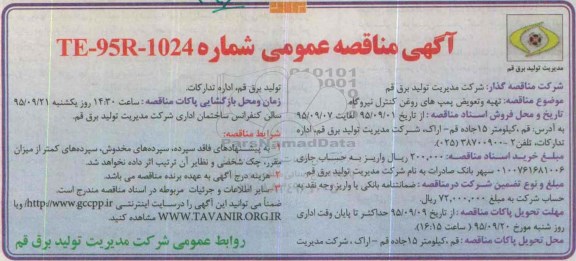 آگهی مناقصه عمومی شماره TE-95R-1024
مدیریت تولید برق قم
شرکت مناقصه گذار: شرکت مدیریت تولید برق قم
موضوع مناقصه: تهیه وتعویض پمپ های روغن کنترل نیروگاه
تاریخ و محل فروش اسناد مناقصه: از تاریخ ۹۵/۰۹/۰۱ لغایت ۹۵/۰۹/۰۷
به آدرس: قم ،کیلومتر ۱۵جاده قم-اراک، شرکت مدیریت تولید برق قم، اداره
تدارکات، تلفن۲-۳۸۷۰۰۹۰۰ (۰۲۵)
مبلغ خرید اسناد مناقصه: ۲۰۰,۰۰۰ ریال واریز به حساب جاری
۰۱۰۰۷۶۱۶۸۱۰۰۶ سپهر بانک صادرات به نام شرکت مدیریت تولید برق قم
مبلغ و نوع تضمین شرکت در مناقصه: ضمانتنامه بانکی یا واریز وجه نقد به
حساب شرکت به مبلغ ۷۲,۰۰۰,۰۰۰ ریال
مهلت تحویل پاکات مناقصه: از تاریخ ۹۵/۰۹/۰۹ حداکثر تا پایان وقت اداری
روز شنبه مورخ ۹۵/۰۹/۲۰ ( ساعت ۱۶:۱۵)
محل تحویل پاکات مناقصه: قم ،کیلومتر ۱۵جاده قم -اراک ، شرکت مدیریت
تولید برق قم، اداره تدارکات.
زمان ومحل بازگشایی پاکات مناقصه : ساعت ۱۴:۳۰ روز یکشنبه ۹۵/۰۹/۲۱
سالن کنفرانس ساختمان اداری شرکت مدیریت تولید برق قم.
شرایط مناقصه:
۱- به پیشنهادهای فاقد سپرده، سپرده‌های مخدوش، سپرده‌های کمتر از میزان
مقرر، چک شخصی و نظایر آن ترتیب اثر داده نخواهد شد.
۲- هزینه درج آگهی به عهده برنده مناقصه می باشد.
۳- سایر اطلاعات و جزئیات مربوطه در اسناد مناقصه مندرج است.
ضمناً می توانید این آگهی را درسایت اینترنتی http://www.gccpp.ir ویا
WWW.TAVANIR.ORG.IR مشاهده کنید.
روابط عمومی شرکت مدیریت تولید برق قم